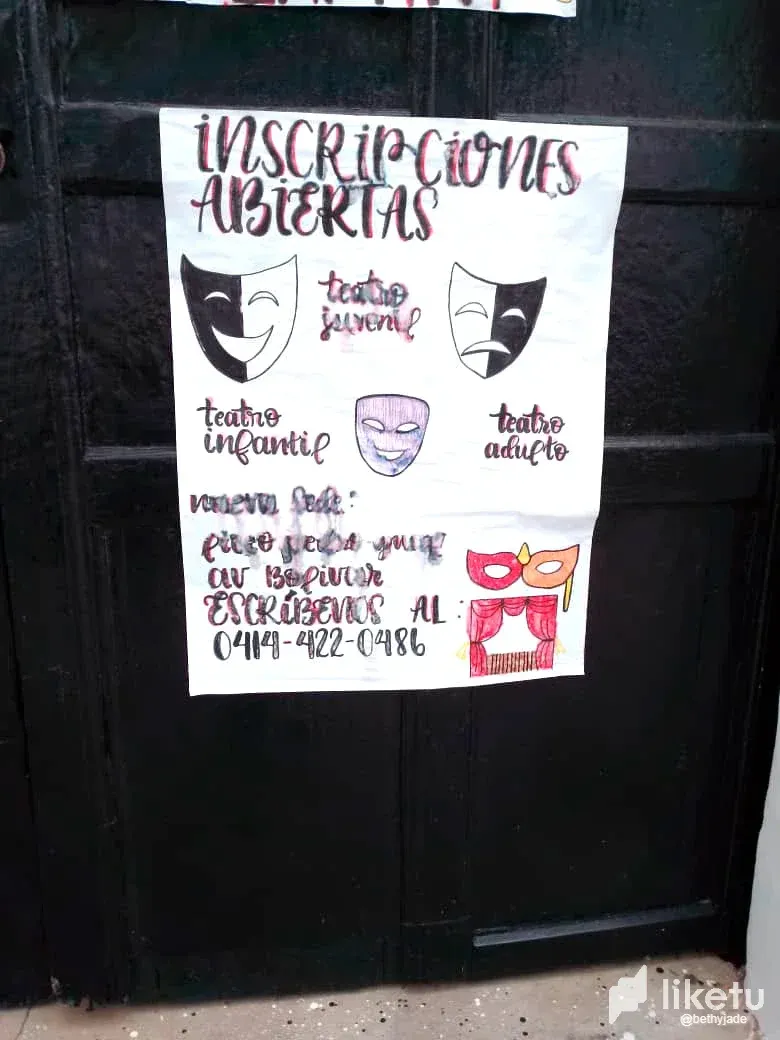 INSCRIPCIONES
ABIERTAS
teatro
juvenil
teatro
infantil
teatro
adulto
nueva Sede:
av Bolívar
ESCRÍBENOS AL:
0414-422-0486
liketu
@bethyjade